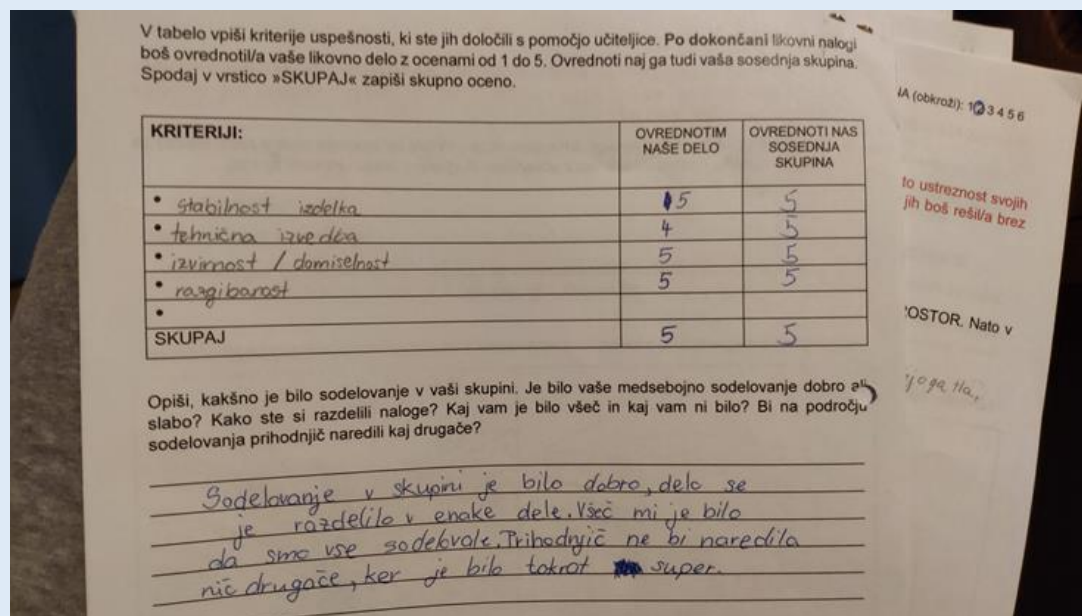 V tabelo vpiši kriterije uspešnosti, ki ste jih določili s pomočjo učiteljice. Po dokončani likovni nalogi
boš ovrednotil/a vaše likovno delo z ocenami od 1 do 5. Ovrednoti naj ga tudi vaša sosednja skupina.
Spodaj v vrstico »SKUPAJ« zapiši skupno oceno.
KRITERIJI: OVREDNOTIM NAŠE DELO OVREDNOTI NAS SOSEDNJA SKUPINA
• stabilnost izdelka 5 5
• tehnična izvedba 4 5
• izvirnost / domiselnost 5 5
• razgibanost 5 5
•
SKUPAJ 5 5
Opiši, kakšno je bilo sodelovanje v vaši skupini. Je bilo vaše medsebojno sodelovanje dobro ali
slabo? Kako ste si razdelili naloge? Kaj vam je bilo všeč in kaj vam ni bilo? Bi na področju
sodelovanja prihodnjič naredili kaj drugače?
Sodelovanje v skupini je bilo dobro, delo se
je razdelilo v enake dele. Všeč mi je bilo
da smo vse sodelovale. Prihodnjič ne bi naredila
nič drugače, ker je bilo tokrat super.
(obkroži): 1 2 3 4 5 6
to ustreznost svojih
jih boš rešil/a brez
OSTOR. Nato v